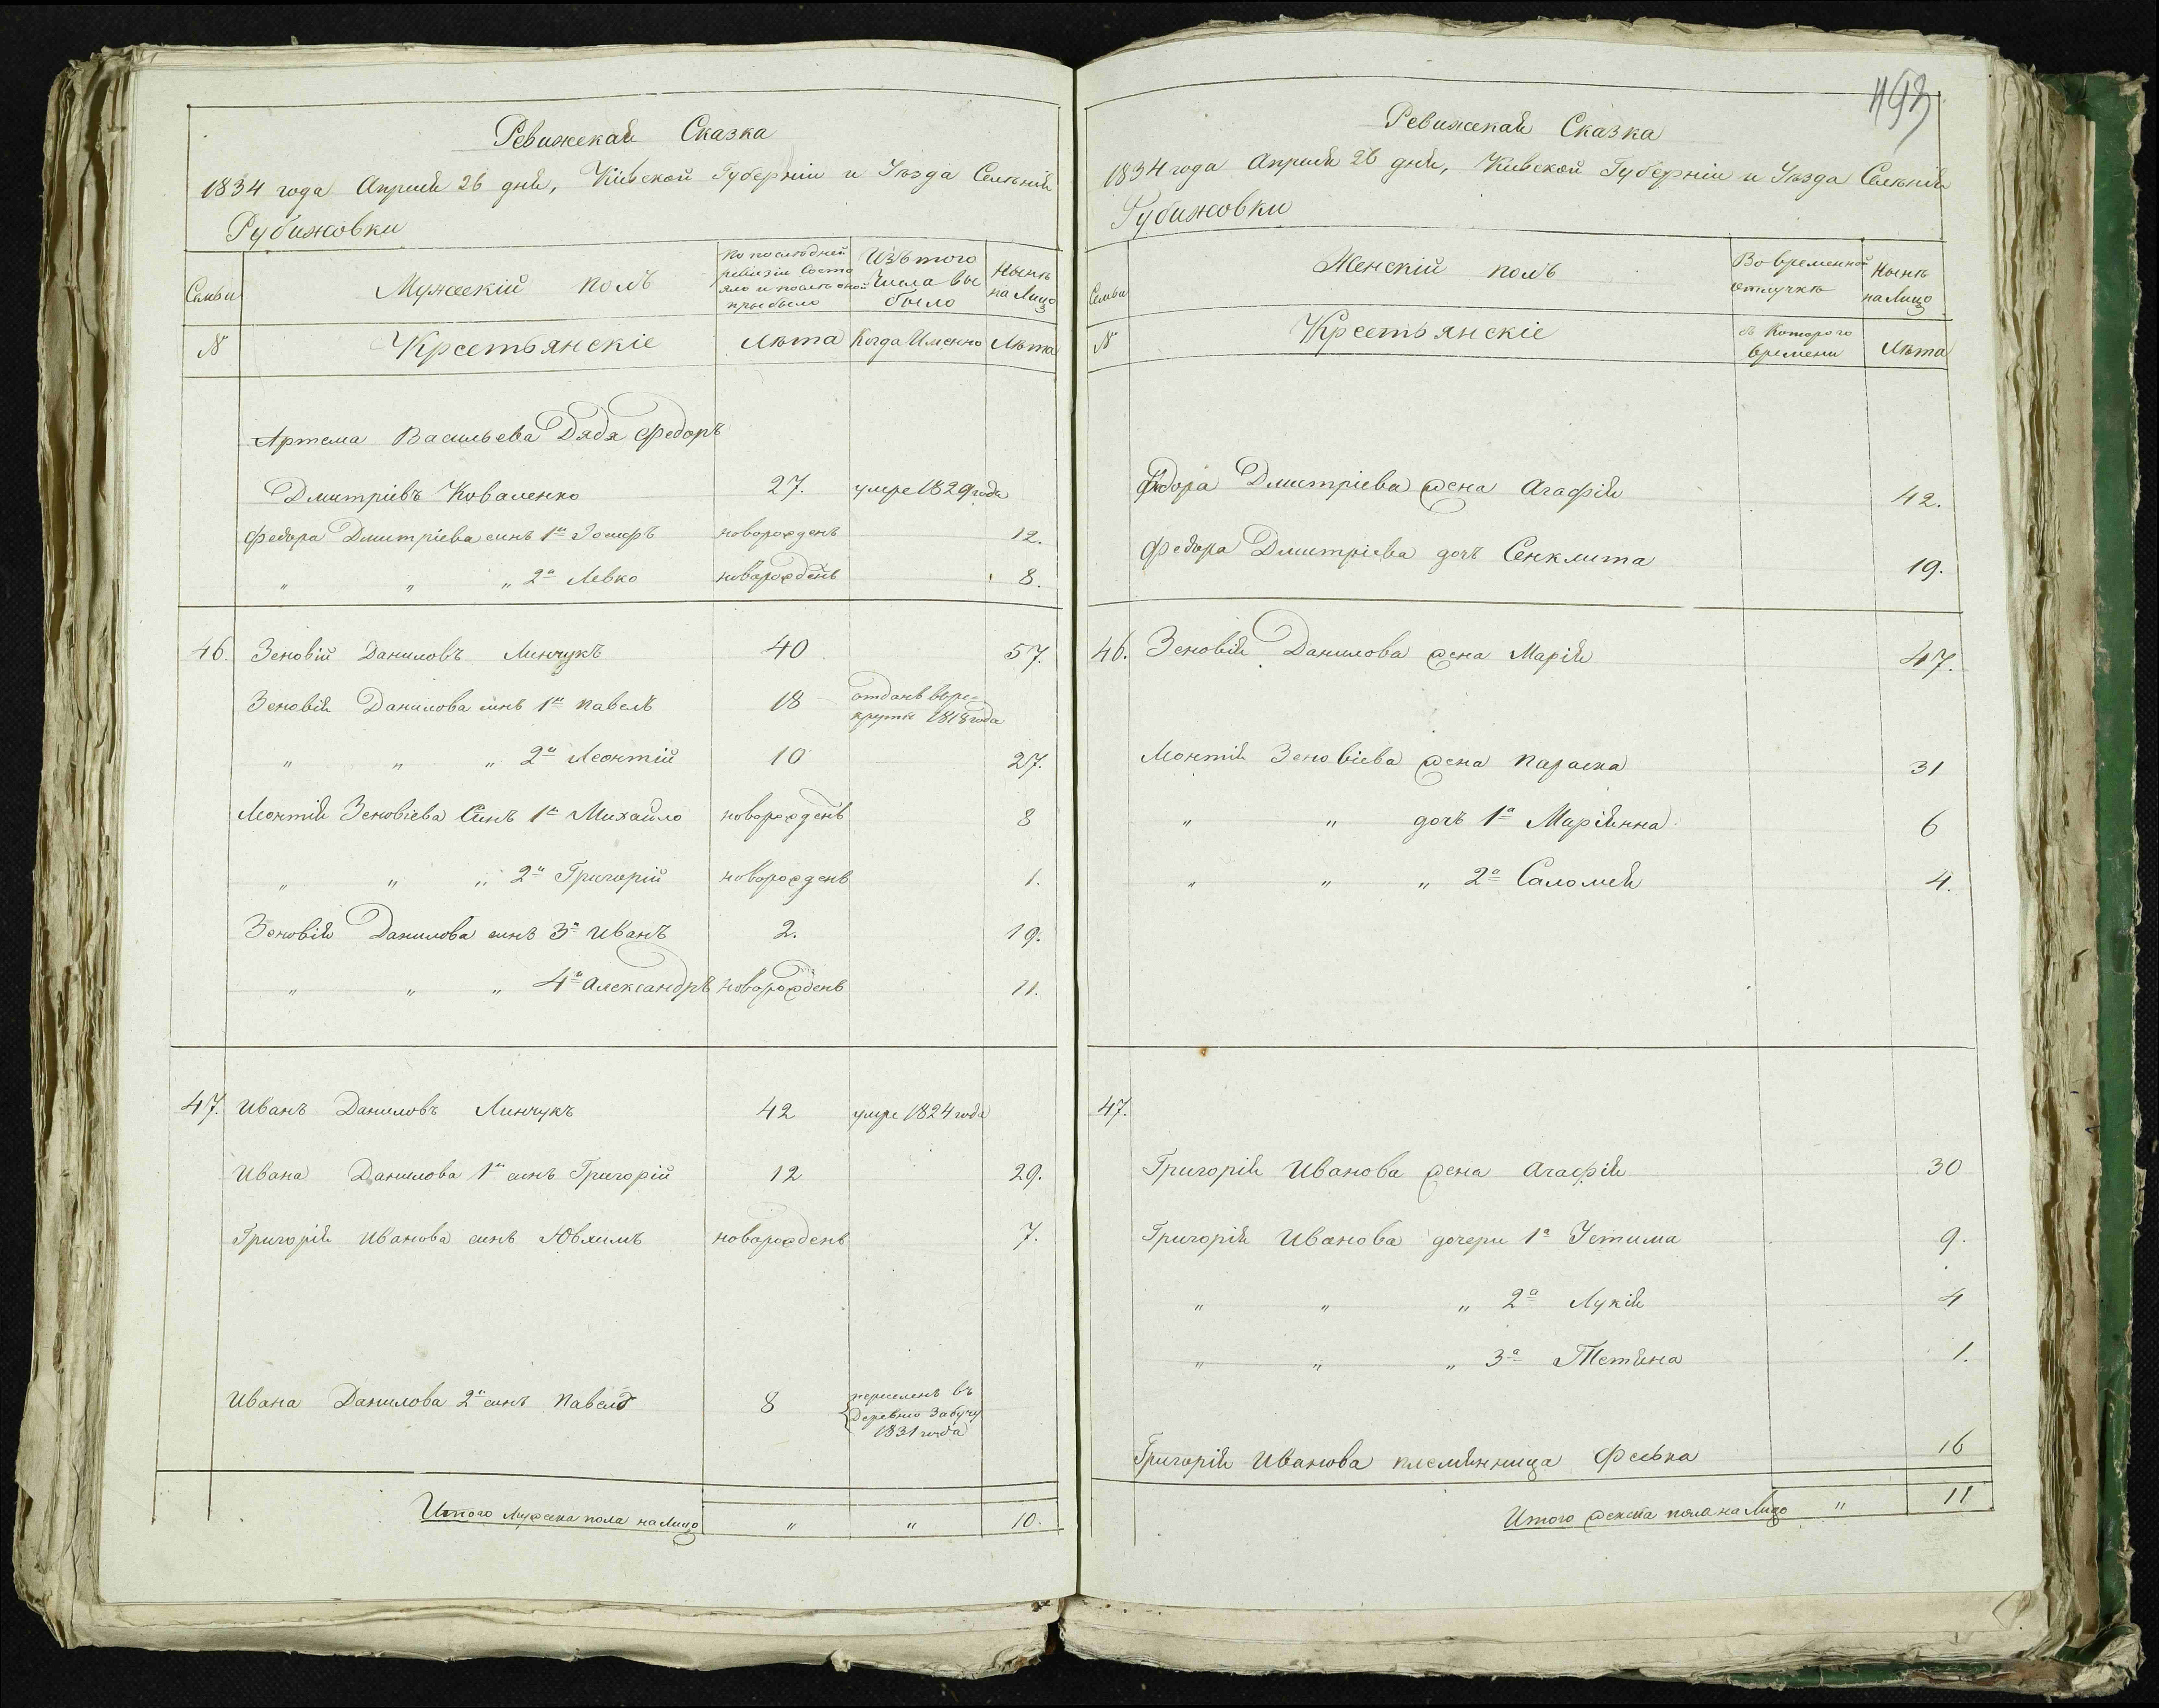 Ревижская Сказка
1834 года Апреля 26 дня, Кіевской Губерніи и Уѣзда Селѣнія
Рубижовки
Семьи
Мужескій полъ
По последней ревизіи состояло и после оной прыбыло
Изъ того числа выбыло
Нынѣ на Лицо
№
Крестьянскіе
Лѣта
Когда Именно
Лѣта
Артема Васильева Дядя Федоръ
Дмитріевъ Коваленко 27. умре 1829 года
Федора Дмитріева синъ 1й Іосифъ новорожденъ 12.
" " " 2й Левко новорожденъ 8.
46. Зеновій Даниловъ Линчукъ 40 57.
Зеновія Данилова синъ 1й Павелъ 18 отданъ въ рекруты 1818 года
" " " 2й Леонтій 10 27.
Леонтія Зеновіева Синъ 1й Михайло новорожденъ 8
" " " 2й Григорій новорожденъ 1.
Зеновія Данилова синъ 3й Иванъ 2. 19.
" " " 4й Александръ новорожденъ 11.
47. Иванъ Даниловъ Линчукъ 42 умре 1824 года
Ивана Данилова 1й синъ Григорій 12 29.
Григорія Иванова синъ Ювхимъ новорожденъ 7.
Ивана Данилова 2й синъ Павелъ 8 переселенъ въ Деревню Забучу 1831 года
Итого Мужеска пола на Лицо " " 10.
Ревижская Сказка
1834 года Апреля 26 дня, Киевской Губерніи и Уѣзда Селѣнія
Рубижовки
Семьи
Женскій полъ
Во временной отлучкѣ
Нынѣ на Лицо
№
Крестьянскіе
съ Которого времени
Лѣта
Федора Дмитріева жена Агафія 42.
Федора Дмитріева дочъ Сенклита 19.
46. Зеновія Данилова жена Марія 47.
Леонтія Зеновіева жена Параска 31
" " дочъ 1я Маріянна 6
" " " 2я Саломея 4.
47.
Григорія Иванова жена Агафія 30
Григорія Иванова дочери 1я Устима 9.
" " " 2я Лукія 4
" " " 3я Тетяна 1.
Григорія Иванова племянница Феська 16
Итого женска пола на Лицо " 11